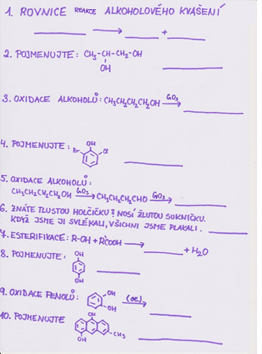 1. ROVNICE REAKCE ALKOHOLOVÉHO KVAŠENÍ
+
2. POJMENUJTE: CH₃-CH-CH₂-OH
OH
3. OXIDACE ALKOHOLŮ: CH₃CH₂CH₂CH₂OH
OH
4. POJMENUJTE: Br Cl
5. OXIDACE ALKOHOLŮ:
CH₃CH₂CH₂CH₂OH CH₃CH₂CH₂CHO
6. ZNÁTE TLUSTOU HOLČIČKU? NOSÍ ŽLUTOU SUKNIČKU.
KDYŽ JSME JI SVLÉKALI, VŠICHNI JSME PLAKALI.
7. ESTERIFIKACE: R-OH + R'COOH + H₂O
8. POJMENUJTE: OH
OH
9. OXIDACE FENOLŮ: OH
OH
10. POJMENUJTE OH
CH₃
OH